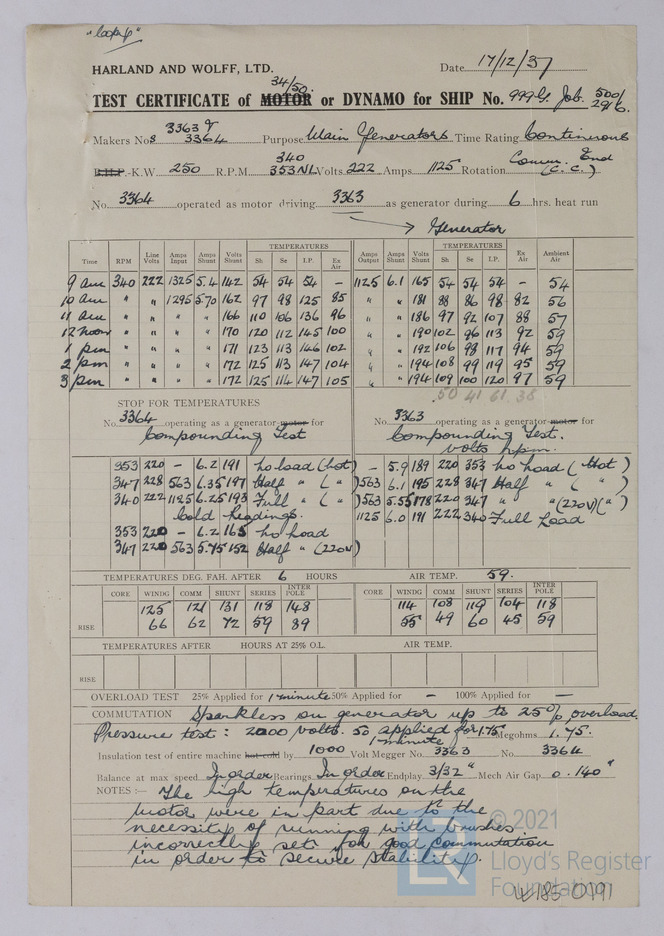 "Copy"
HARLAND AND WOLFF, LTD. Date 17/12/37
34/50.
TEST CERTIFICATE of MOTOR or DYNAMO for SHIP No. 999G. Job. 500/2916.
Makers Nos 3363 & 3364 Purpose Main Generators Time Rating Continuous
B.H.P.-K.W 250 R.P.M. 340 353 NL Volts 222 Amps 1125 Rotation Comm. End (C.C.)
No. 3364 operated as motor driving 3363 as generator during 6 hrs. heat run
Generator
TEMPERATURES TEMPERATURES
Time RPM Line Volts Amps Input Amps Shunt Volts Shunt Sh Se I.P. Ex Air Amps Output Amps Shunt Volts Shunt Sh Se I.P. Ex Air Ambient Air
9 am 340 222 1325 5.4 142 54 54 54 - 1125 6.1 165 54 54 54 - 54
10 am " " 1295 5.70 162 97 98 125 85 " " 181 88 86 98 82 56
11 am " " " " 166 110 106 136 96 " " 186 97 92 107 88 57
12 noon " " " " 170 120 112 145 100 " " 190 102 96 113 92 59
1 pm " " " " 171 123 113 146 102 " " 192 106 98 117 94 59
2 pm " " " " 172 125 113 147 104 " " 194 108 99 119 95 59
3 pm " " " " 172 125 114 147 105 " " 194 109 100 120 97 59
50 41 61 38
STOP FOR TEMPERATURES
No. 3364 operating as a generator motor for No. 3363 operating as a generator motor for
Compounding Test Compounding Test.
volts rpm.
353 220 - 6.2 191 no load (hot) - 5.9 189 220 353 no load (Hot)
347 228 563 6.35 197 Half " ( " ) 563 6.1 195 228 347 Half " ( " )
340 222 1125 6.25 193 Full " ( " ) 563 5.55 178 220 347 " " (220V)(")
Cold Readings. 1125 6.0 191 222 340 Full Load
353 220 - 6.2 165 no load
347 220 563 5.75 152 Half " (220V)
TEMPERATURES DEG. FAH. AFTER 6 HOURS AIR TEMP. 59.
CORE WINDG COMM SHUNT SERIES INTER POLE CORE WINDG COMM SHUNT SERIES INTER POLE
125 121 131 118 148 114 108 119 104 118
RISE 66 62 72 59 89 55 49 60 45 59
TEMPERATURES AFTER HOURS AT 25% O.L. AIR TEMP.
RISE
OVERLOAD TEST 25% Applied for 1 minute 50% Applied for - 100% Applied for -
COMMUTATION Sparkless on generator up to 25% overload.
Pressure test: 2000 volts. 50 applied for 1 minute 1.75 Megohms 1.75.
Insulation test of entire machine hot-cold by 1000 Volt Megger No. 3363 No. 3364
Balance at max speed In order Bearings In order Endplay 3/32" Mech Air Gap 0.140"
NOTES :— The high temperatures on the
motor were in part due to the
necessity of running with brushes
incorrectly set for good commutation
in order to secure stability.
© 2021
Lloyd's Register
Foundation
W185-0191